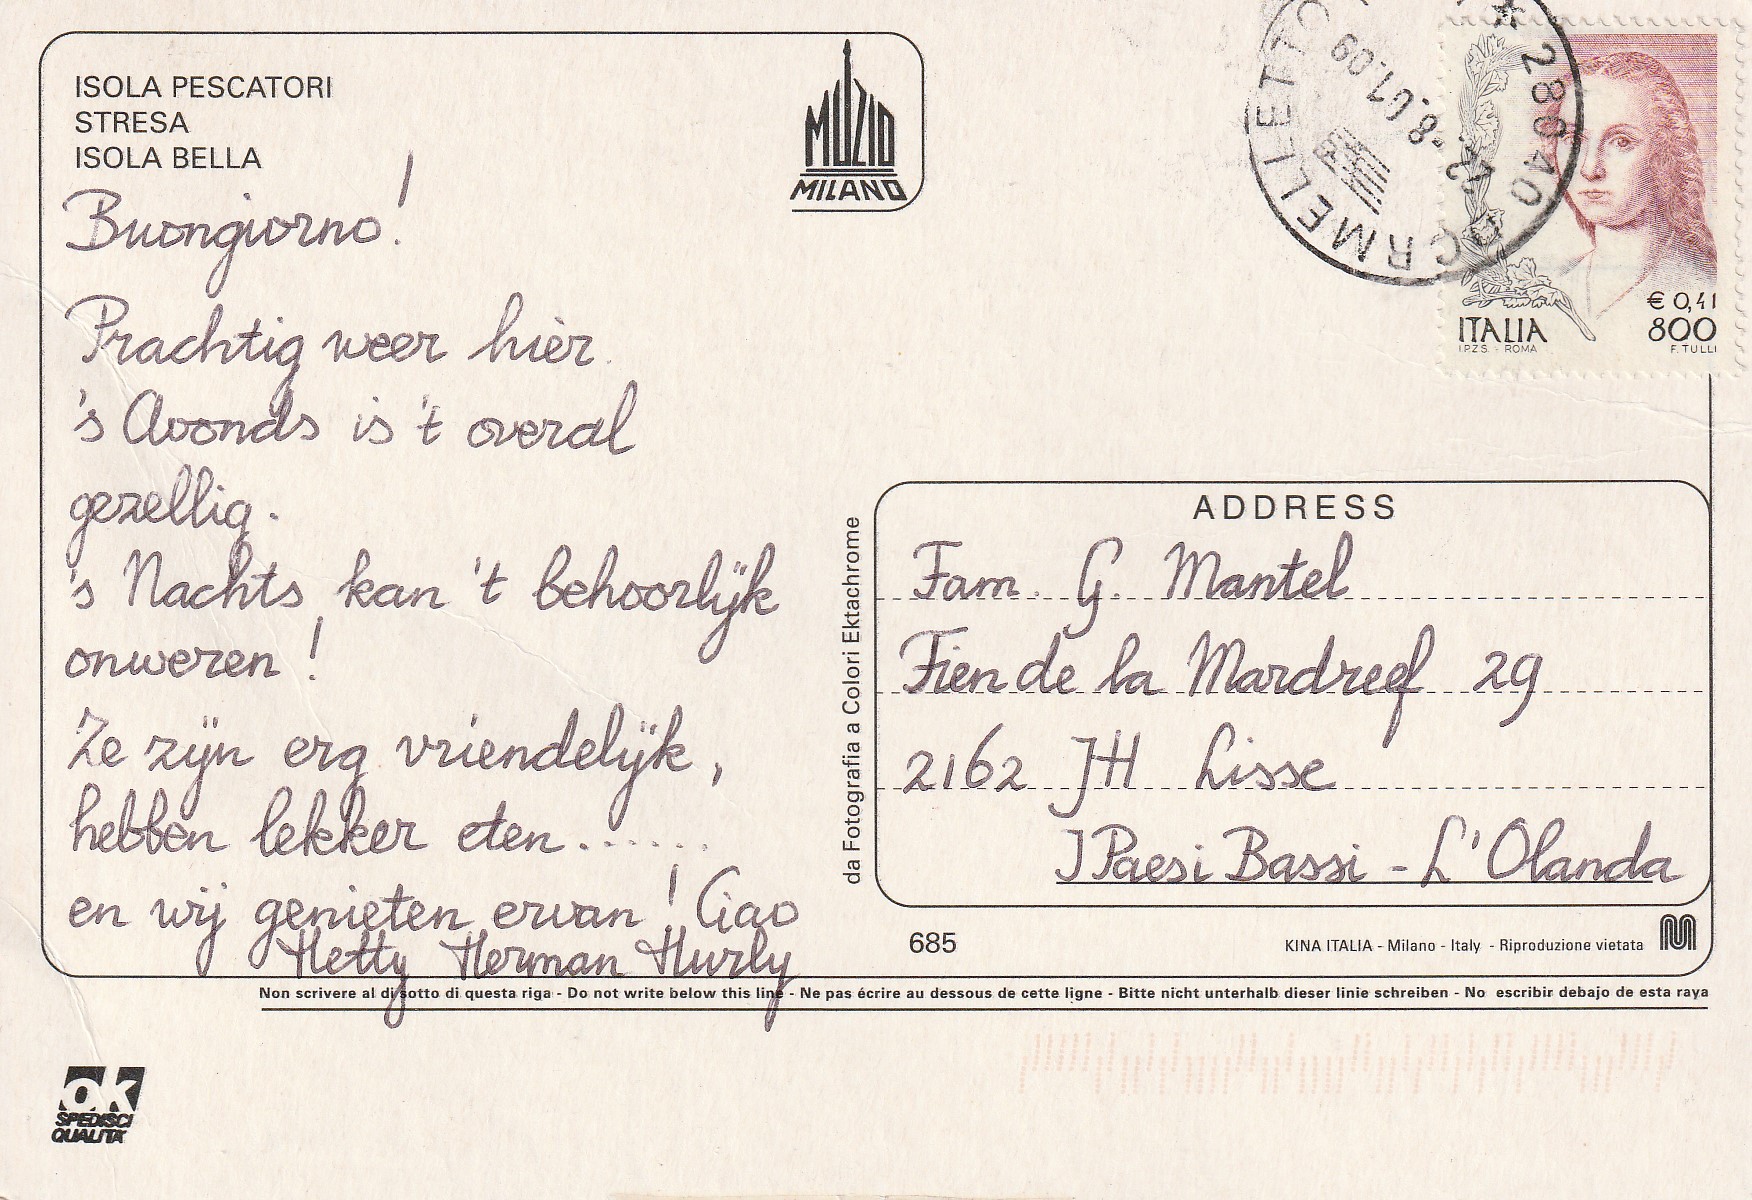 ISOLA PESCATORI
STRESA
ISOLA BELLA
MUZIO
MILANO
Buongiorno!
Prachtig weer hier.
's Avonds is 't overal
gezellig.
's Nachts kan 't behoorlijk
onweren!
Ze zijn erg vriendelijk,
hebben lekker eten......
en wij genieten ervan! Ciao
Hetty Herman Hurly
da Fotografia a Colori Ektachrome
28040 DORMELLETTO
-8.01.09
ITALIA
I.P.Z.S. - ROMA
€ 0,41
800
F. TULLI
ADDRESS
Fam. G. Mantel
Fien de la Mardreef 29
2162 JH Lisse
I Paesi Bassi - L'Olanda
685
KINA ITALIA - Milano - Italy - Riproduzione vietata
Non scrivere al di sotto di questa riga - Do not write below this line - Ne pas écrire au dessous de cette ligne - Bitte nicht unterhalb dieser linie schreiben - No escribir debajo de esta raya
ok
SPEDISCI
QUALITA'